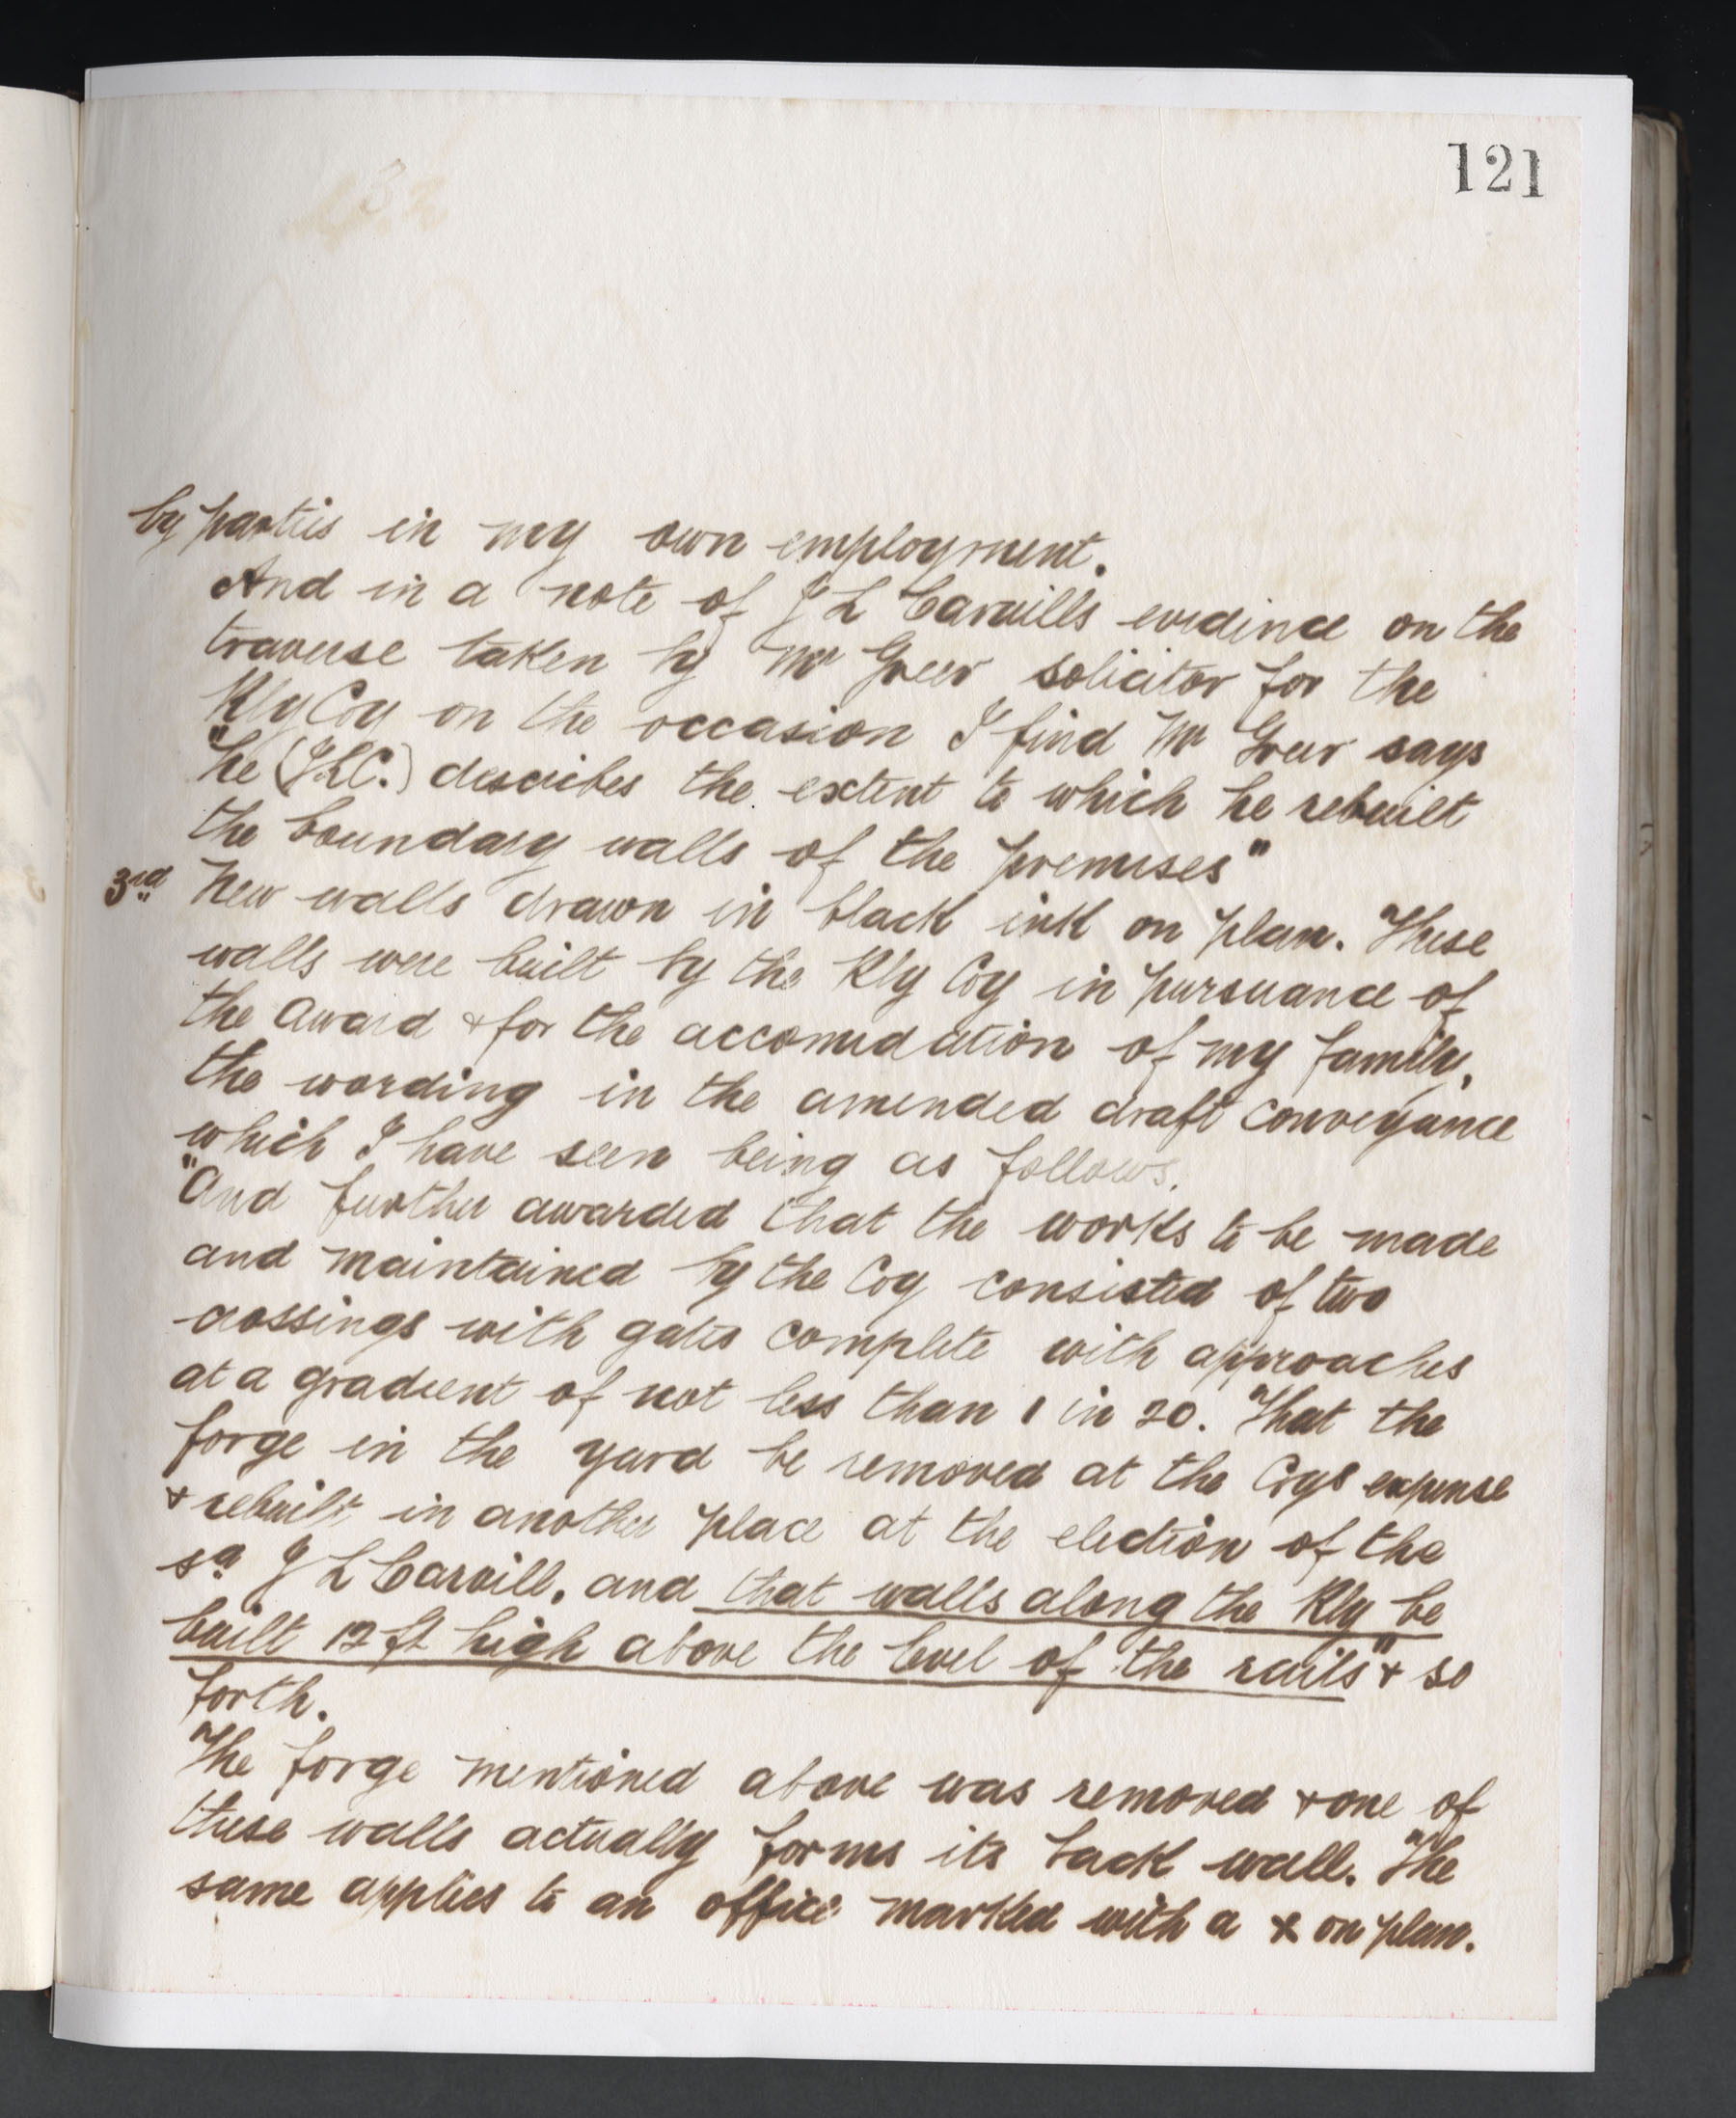 121
by parties in my own employment.
And in a note of J L Carvills evidence on the
traverse taken by Mr Greer solicitor for the
Rly Coy on the occasion I find Mr Greer says
"he (JLC.) describes the extent to which he rebuilt
the boundary walls of the premises"
3rd New walls drawn in black ink on plan. These
walls were built by the Rly Coy in pursuance of
the award & for the accomodation of my family,
the wording in the amended draft conveyance
which I have seen being as follows.
"And further awarded that the works to be made
and maintained by the Coy consisted of two
crossings with gates complete with approaches
at a gradient of not less than 1 in 20. That the
forge in the yard be removed at the Coys expense
& rebuilt in another place at the election of the
sd J L Carvill. and that walls along the Rly be
built 12 ft high above the level of the rails" & so
forth.
The forge mentioned above was removed & one of
these walls actually forms its back wall. The
same applies to an office marked with a x on plan.